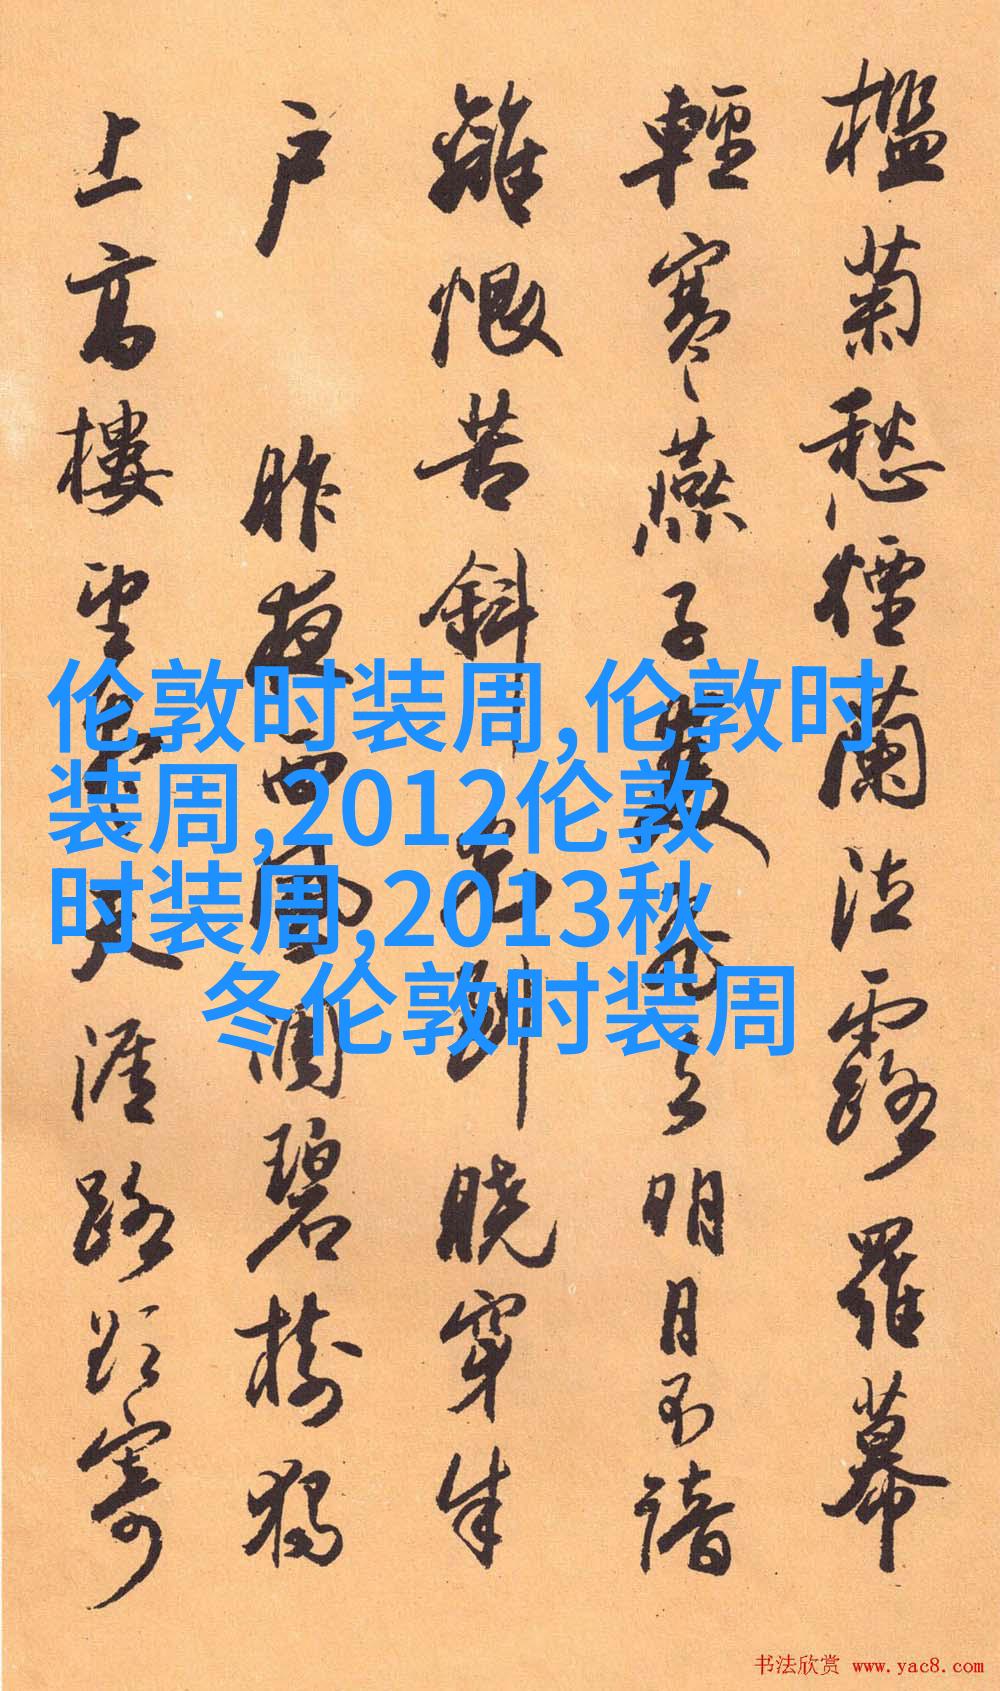 檻菊愁煙蘭泣露羅幕
輕寒燕子雙飛去明月不諳
離恨苦斜光到曉穿朱
户 昨夜西風凋碧樹獨
上高樓望盡天涯路欲寄
伦敦时装周,伦敦时
装周,2012伦敦
时装周,2013秋
冬伦敦时装周
书法欣赏 www.yac8.com